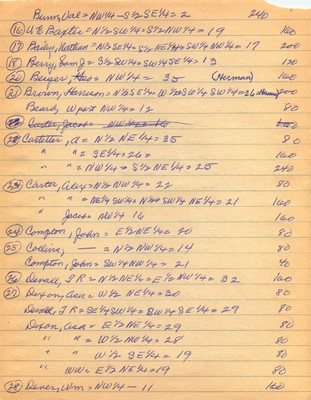 Bunn, Val = NW¼ - S½ SE¼ = 2 240
(16) W E Baxter = N½ SW¼ = S½ NW¼ = 19 160
(17) Bailey, Nathan = N½ SE¼ = S½ NE¼ = SW¼ NW¼ = 17 200
(18) Berry, Sam J = S½ SW¼ = SW¼ SE¼ = 13 120
(20) Berger, NW¼ = 35 (Herman) 160
(21) Brown, Henson = N½ SE¼ = W½ SW¼ = 26 200
Beard, W part NW¼ = 12 80
(22) Carter, Jacob = NW¼ = 16 160
(22) Carteter, A = N½ NE¼ = 35 80
" " = SE¼ = 26 = 160
" " = NW¼ = S½ NE¼ = 25 240
(23) Carter, Alex = N½ NW¼ = 22 80
" " = NE¼ SW¼ = N½ SW¼ = SW¼ NE¼ = 21 160
" Jacob = NW¼ 16 160
(24) Compton, John = E½ NE¼ = 20 80
(25) Collins, — = N½ NW¼ = 14 80
Compton, John = SW¼ NW¼ = 21 40
(26) Devall, F R = N½ NE¼ = E½ NW¼ = 32 160
(27) Dixon, Asa = W½ NE¼ = 30 80
Devall, F R = SE¼ SW¼ = SW¼ SE¼ = 29 80
Dixon, Asa = E½ NE¼ = 29 80
" " = W½ NW¼ = 28 80
" " W½ SE¼ = 19 80
" WW = E½ NE¼ = 19 80
(28) Dener, Wm = NW¼ - 11 160